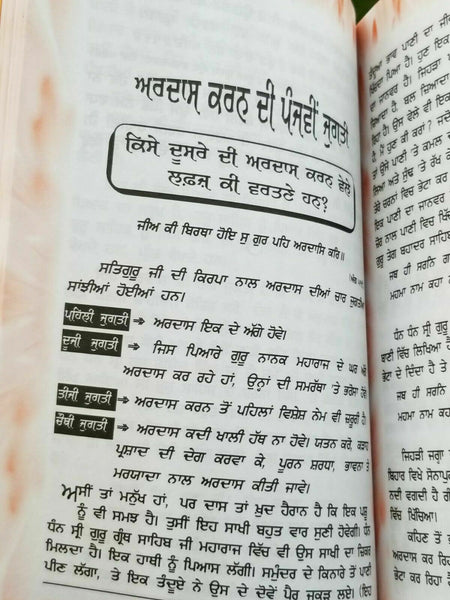 ਅਰਦਾਸ ਕਰਨ ਦੀ ਪੰਜਵੀਂ ਜੁਗਤੀ
ਕਿਸੇ ਦੂਸਰੇ ਦੀ ਅਰਦਾਸ ਕਰਨ ਵੇਲੇ
ਲਫ਼ਜ਼ ਕੀ ਵਰਤਣੇ ਹਨ?
ਜੀਅ ਕੀ ਬਿਰਥਾ ਹੋਇ ਸੁ ਗੁਰ ਪਹਿ ਅਰਦਾਸਿ ਕਰਿ॥
ਸਤਿਗੁਰੂ ਜੀ ਦੀ ਕਿਰਪਾ ਨਾਲ ਅਰਦਾਸ ਦੀਆਂ ਚਾਰ ਜੁਗਤੀਆਂ
ਸਾਂਝੀਆਂ ਹੋਈਆਂ ਹਨ।
ਪਹਿਲੀ ਜੁਗਤੀ ⇒ ਅਰਦਾਸ ਇਕ ਦੇ ਅੱਗੇ ਹੋਵੇ।
ਦੂਜੀ ਜੁਗਤੀ ⇒ ਜਿਸ ਪਿਆਰੇ ਗੁਰੂ ਨਾਨਕ ਮਹਾਰਾਜ ਦੇ ਘਰ ਅੱਗੇ
ਅਰਦਾਸ ਕਰ ਰਹੇ ਹਾਂ, ਉਨ੍ਹਾਂ ਦੀ ਸਮਰੱਥਾ 'ਤੇ ਭਰੋਸਾ ਹੋਵੇ
ਤੀਜੀ ਜੁਗਤੀ ⇒ ਅਰਦਾਸ ਕਰਨ ਤੋਂ ਪਹਿਲਾਂ ਵਿਸ਼ੇਸ਼ ਨੇਮ ਵੀ ਜ਼ਰੂਰੀ ਹੈ
ਚੌਥੀ ਜੁਗਤੀ ⇒ ਅਰਦਾਸ ਕਦੀ ਖਾਲੀ ਹੱਥ ਨਾ ਹੋਵੇ। ਯਤਨ ਕਰੋ, ਕੜਾਹ
ਪ੍ਰਸ਼ਾਦ ਦੀ ਦੇਗ ਕਰਵਾ ਕੇ, ਪੂਰਨ ਸ਼ਰਧਾ, ਭਾਵਨਾ ਤੇ
ਮਰਯਾਦਾ ਨਾਲ ਅਰਦਾਸ ਕੀਤੀ ਜਾਵੇ।
ਅਸੀਂ ਤਾਂ ਮਨੁੱਖ ਹਾਂ, ਪਰ ਦਾਸ ਤਾਂ ਖ਼ੁਦ ਹੈਰਾਨ ਹੈ ਕਿ ਇਕ ਪਸ਼ੂ
ਨੂੰ ਵੀ ਸਮਝ ਹੈ। ਤੁਸੀਂ ਇਹ ਸਾਖੀ ਬਹੁਤ ਵਾਰ ਸੁਣੀ ਹੋਵੇਗੀ।
ਧੰਨ ਸ੍ਰੀ ਗੁਰੂ ਗ੍ਰੰਥ ਸਾਹਿਬ ਜੀ ਮਹਾਰਾਜ ਵਿੱਚ ਵੀ ਉਸ ਸਾਖੀ ਦਾ ਜ਼ਿਕਰ
ਮਿਲਦਾ ਹੈ। ਇਕ ਹਾਥੀ ਨੂੰ ਪਿਆਸ ਲੱਗੀ। ਸਮੁੰਦਰ ਦੇ ਕਿਨਾਰੇ ਤੋਂ ਪਾਣੀ
ਪੀਣ ਲੱਗਾ, ਤੇ ਇਕ ਤੰਦੂਏ ਨੇ ਉਸ ਦੇ ਦੋਵੇਂ ਪੈਰ ਜਕੜ ਲਏ। (ਇਹ
ਤੰਦੂਆ ਭਾਵ ਪਾਣੀ ਦਾ ਜੀਵ
ਪਿਆ ਹੈ। ਹੁਣ ਇਕ
ਦਾ ਜਾਨਵਰ ਹੈ। ਜਿਹੜਾ ਪਾਣੀ
ਰਿਹਾ ਹੈ। ਉਸ ਵੇਲੇ ਵੀ ਇਕ
ਮੈਂ ਹੁਣ ਕੀ ਕਰਾਂ? ਜਦੋਂ
ਇਕ ਪਾਣੀ ਦਾ ਜਾਨਵਰ
ਜ਼ੋਰ ਨਾਲ ਪਾਣੀ ਵਿਚ ਖਿੱਚ
ਗੁਰੂ ਤੇਗ ਬਹਾਦਰ ਸਾਹਿਬ
ਜਬ ਹੀ ਸਰਨਿ ਗਹੀ
ਮਹਮਾ ਨਾਮ ਕਹਾ
ਧੰਨ ਧੰਨ ਸ੍ਰੀ ਗੁਰੂ
ਬਾਣੀ ਵਿੱਚ ਲਿਖਿਆ ਹੈ
ਭੇਟਾ ਦੇ ਦਿੰਦਾ ਹੈ ਤੇ
ਜਬ ਹੀ ਸਰਨਿ
ਮਹਮਾ ਨਾਮ ਕਹਾ
ਜਿਹੜੀ ਜਗ੍ਹਾ
ਬਿਹਾਰ ਵਿਖੇ ਸੋਨਾਪੁਰ
ਨਦੀ ਵਗਦੀ ਹੈ
ਵਿੱਚ ਖਿੱਚਿਆ।
ਕਹਿਣ ਤੋਂ
ਅਰਦਾਸ ਕਰ ਰਿਹਾ
ਭੇਟਾ ਕਰ ਰਿਹਾ